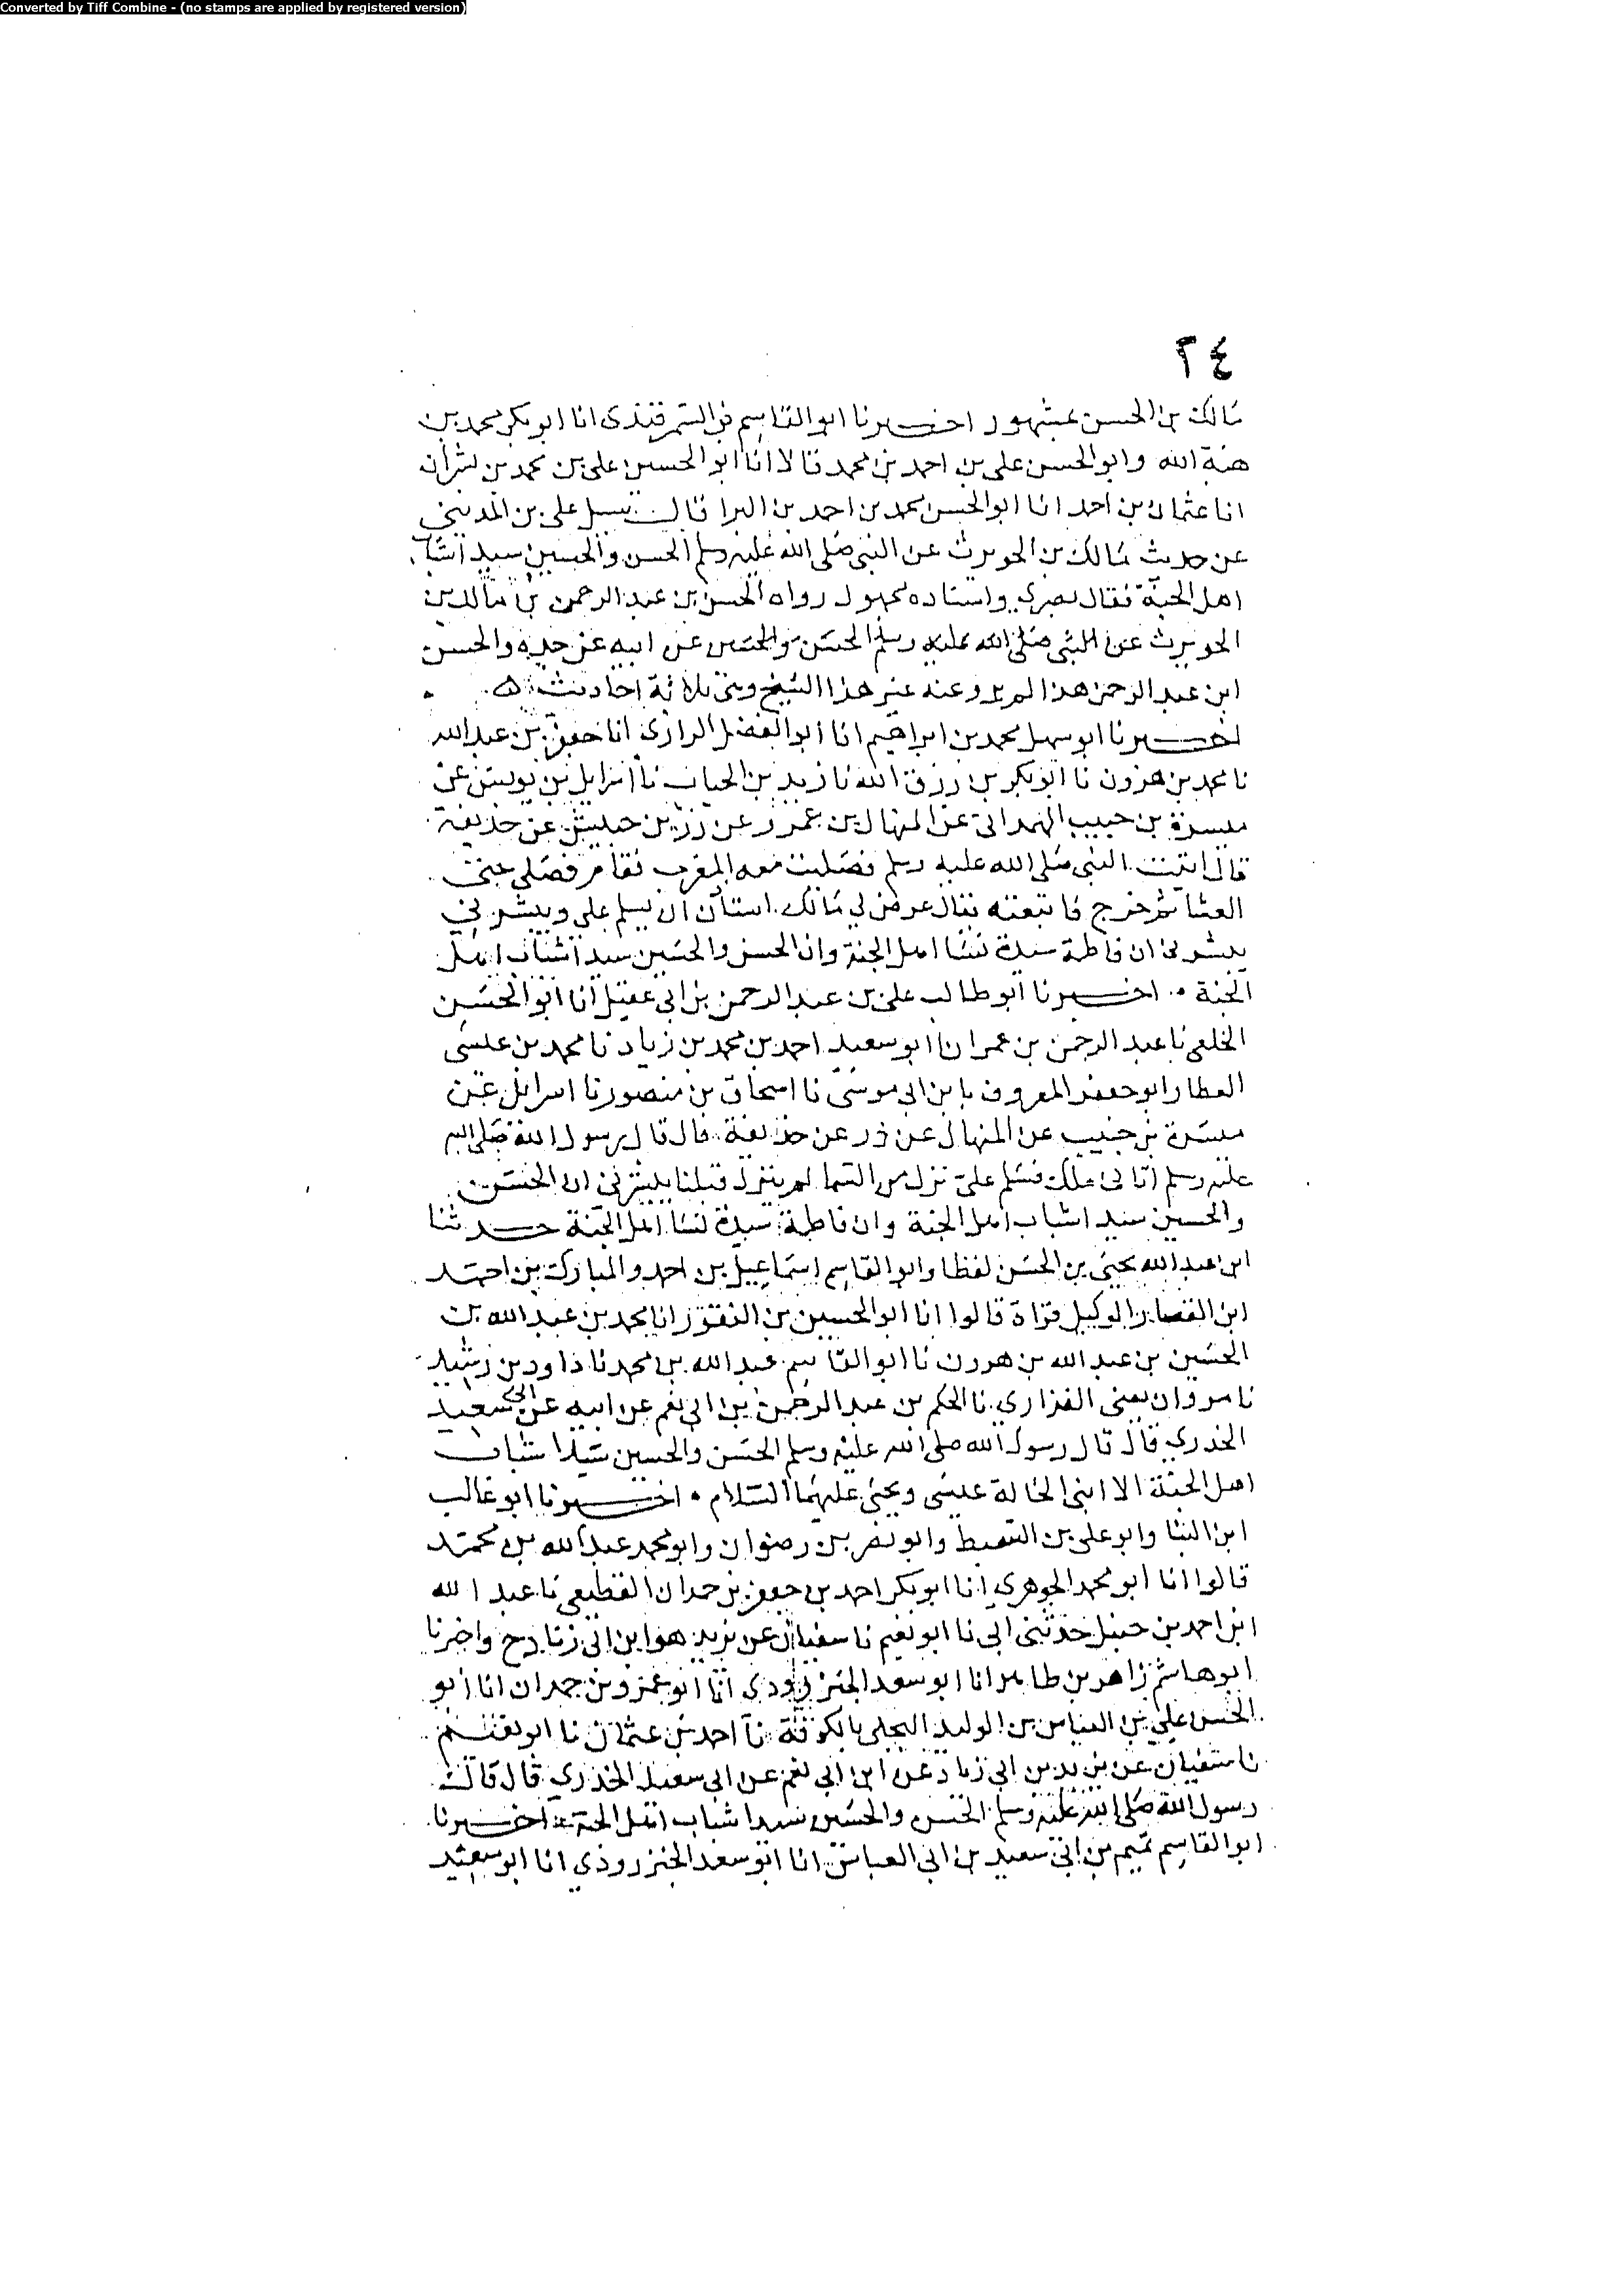 Converted by Tiff Combine - (no stamps are applied by registered version)
٢٤
مالك بن الحسن مشهور اخبرنا ابو القاسم بن السمرقندى انا ابو بكر محمد بن
هبة الله وابو الحسن على بن احمد بن محمد قالا انا ابو الحسين على بن محمد بن بشران
انا عثمان بن احمد انا ابو الحسن محمد بن احمد بن البرا قال سيل على بن المدينى
عن حديث مالك بن الحويرث عن النبى صلى الله عليه وسلم الحسن والحسين سيدا شباب
اهل الجنة فقال بصرى واسناده مجهول رواه الحسن بن عبد الرحمن بن مالك بن
الحويرث عن النبى صلى الله عليه وسلم الحسن والحسين عن ابيه عن جده والحسن
ابن عبد الرحمن هذا لم يرو عنه غير هذا الشيخ وبنى ثلاثة احاديث ه
اخبرنا ابو سهل محمد بن ابراهيم انا ابو الفضل الرازى انا جعفر بن عبد الله
نا محمد بن هرون نا ابو بكر بن رزق الله نا زيد بن الحباب نا اسرايل بن يونس عن
ميسرة بن حبيب الهمدانى عن المنهال بن عمرو عن زر بن حبيش عن حذيفة
قال اتيت النبى صلى الله عليه وسلم فصليت معه المغرب فقام فصلى حتى
العشا ثم خرج فاتبعته فقال عرض لى مالك استأذن ان يسلم على ويبشرنى
يبشرنى ان فاطمة سيدة نسا اهل الجنة وان الحسن والحسين سيدا شباب اهل
الجنة ٠ اخبرنا ابو طالب على بن عبد الرحمن بن ابى عقيل انا ابو الحسين
الخلعى نا عبد الرحمن بن عمر انا ابو سعيد احمد بن محمد بن زياد نا محمد بن عيسى
العطار ابو جعفر المعروف بابن ابى موسى نا اسحاق بن منصور نا اسرايل عن
ميسرة بن حبيب عن المنهال عن زر عن حذيفة قال قال رسول الله صلى الله
عليه وسلم اتانى ملك فسلم على نزل من السما لم ينزل قبلنا يبشرنى ان الحسن
والحسين سيدا شباب اهل الجنة وان فاطمة سيدة نسا اهل الجنة حدثنا
ابو عبد الله يحيى بن الحسن لفظا وابو القاسم اسماعيل بن احمد والمبارك بن احمد
ابن القصار الوكيل قراة قالوا انا ابو الحسين بن النقور انا محمد بن عبد الله بن
الحسين بن عبد الله بن هرون نا ابو القاسم عبد الله بن محمد نا داود بن رشيد
نا مروان يعنى الفزارى نا الحكم بن عبد الرحمن بن ابى نعم عن ابيه عن ابى سعيد
الخدرى قال قال رسول الله صلى الله عليه وسلم الحسن والحسين سيدا شباب
اهل الجنة الا ابنى الخالة عيسى ويحيى عليهما السلام ٠ اخبرنا ابو غالب
ابن البنا وابو على بن السبط وابو نصر بن رضوان وابو محمد عبد الله بن محمد
قالوا انا ابو محمد الجوهرى انا ابو بكر احمد بن جعفر بن حمدان القطيعى نا عبد الله
ابن احمد بن حنبل حدثنى ابى نا ابو نعيم نا سفيان عن يزيد هو ابن ابى زياد ح واخبرنا
ابو هاشم زاهر بن طاهر انا ابو سعد الجنزرودى انا ابو عمرو بن حمدان انا ابو
الحسن على بن العباس بن الوليد البجلى بالكوفة نا احمد بن عثمان نا ابو نعيم
نا سفيان عن يزيد بن ابى زياد عن ابن ابى نعم عن ابى سعيد الخدرى قال قال
رسول الله صلى الله عليه وسلم الحسن والحسين سيدا شباب اهل الجنة اخبرنا
ابو القاسم تميم بن ابى سعيد بن ابى العباس انا ابو سعد الجنزرودى انا ابو سعيد